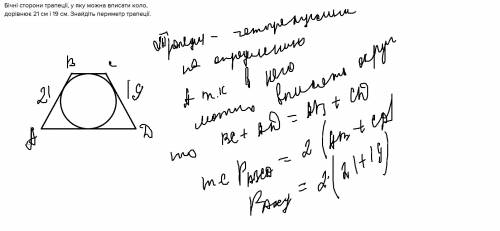 Бічні сторони трапеції, у яку можна вписати коло,
дорівнює 21 см і 19 см. Знайдіть периметр трапеції.
B C
21 19
A D
Трапеция - четырехугольник
по определению
А т.к в него
можно вписать круг
то BC + AD = AB + CD
P = 2 (AB + CD)
P = 2·(21+19)